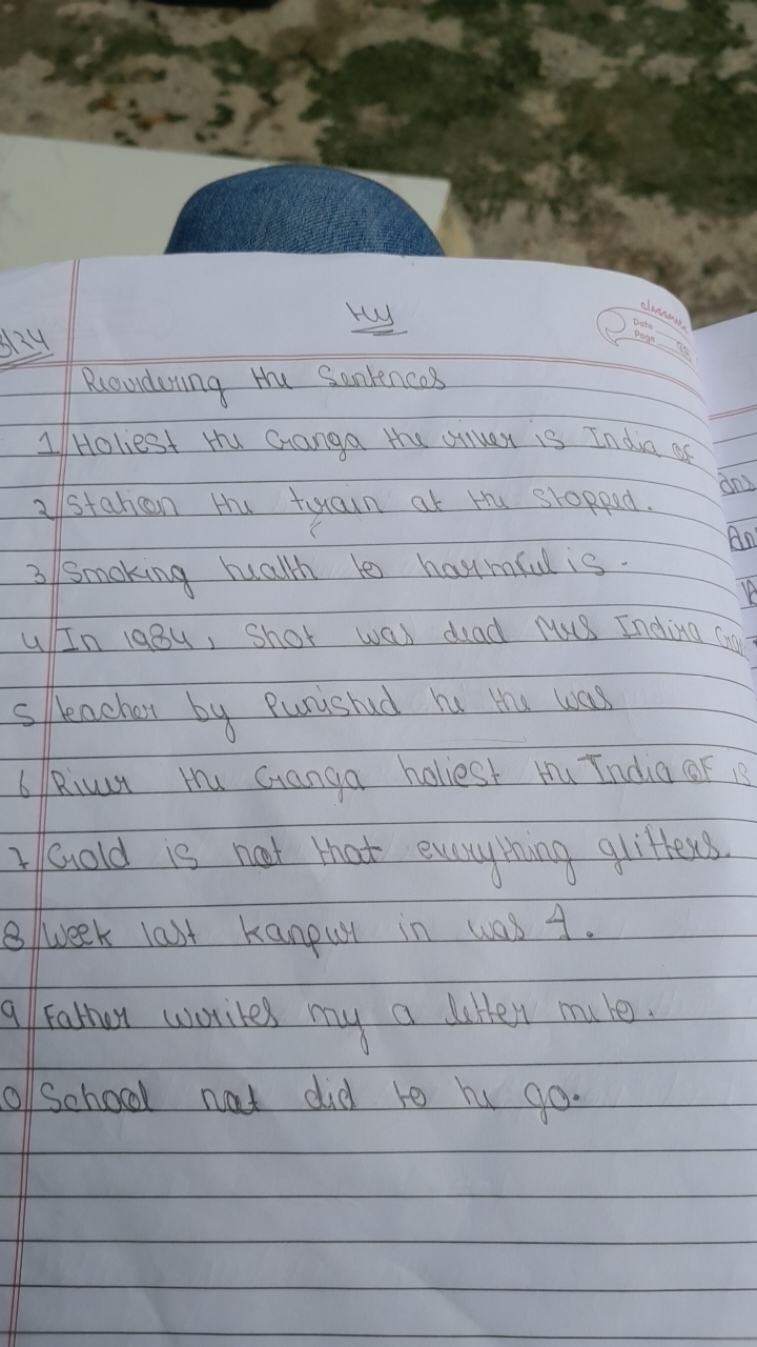 HW
classmate
Date
Page
3/24
Reordering the Sentences
1 Holiest the Ganga the river is India of
2 Station the train at the stopped.
3 Smoking health to harmful is.
4 In 1984, Shot was dead Mrs Indira
5 teacher by Punished he the was
6 River the Ganga holiest the India of is
7 Gold is not that everything glitters.
8 Week last Kanpur in was I.
9 Father writes my a letter me to.
0 School not did to he go.
ans
An